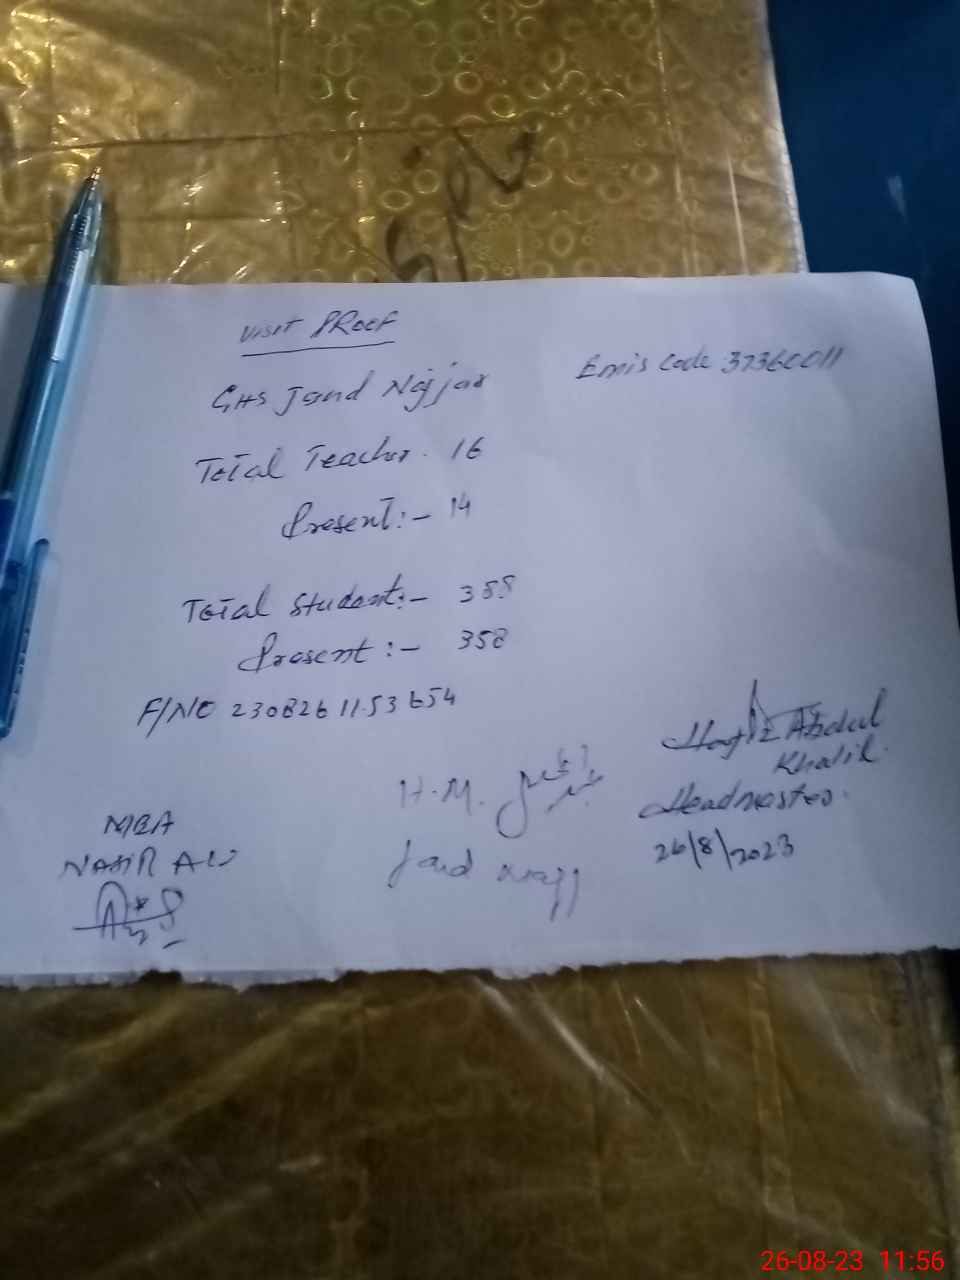 Visit PRoof
GHS Jand Najjar
Emis Code 37360011
Total Teacher. 16
Present:- 14
Total Student:- 358
Present:- 358
F/No 230826 1153654
Hafiz Abdul
Khalik
Headmaster.
26/8/2023
H.M.
Jand
MEA
NASIR ALI
26-08-23 11:56